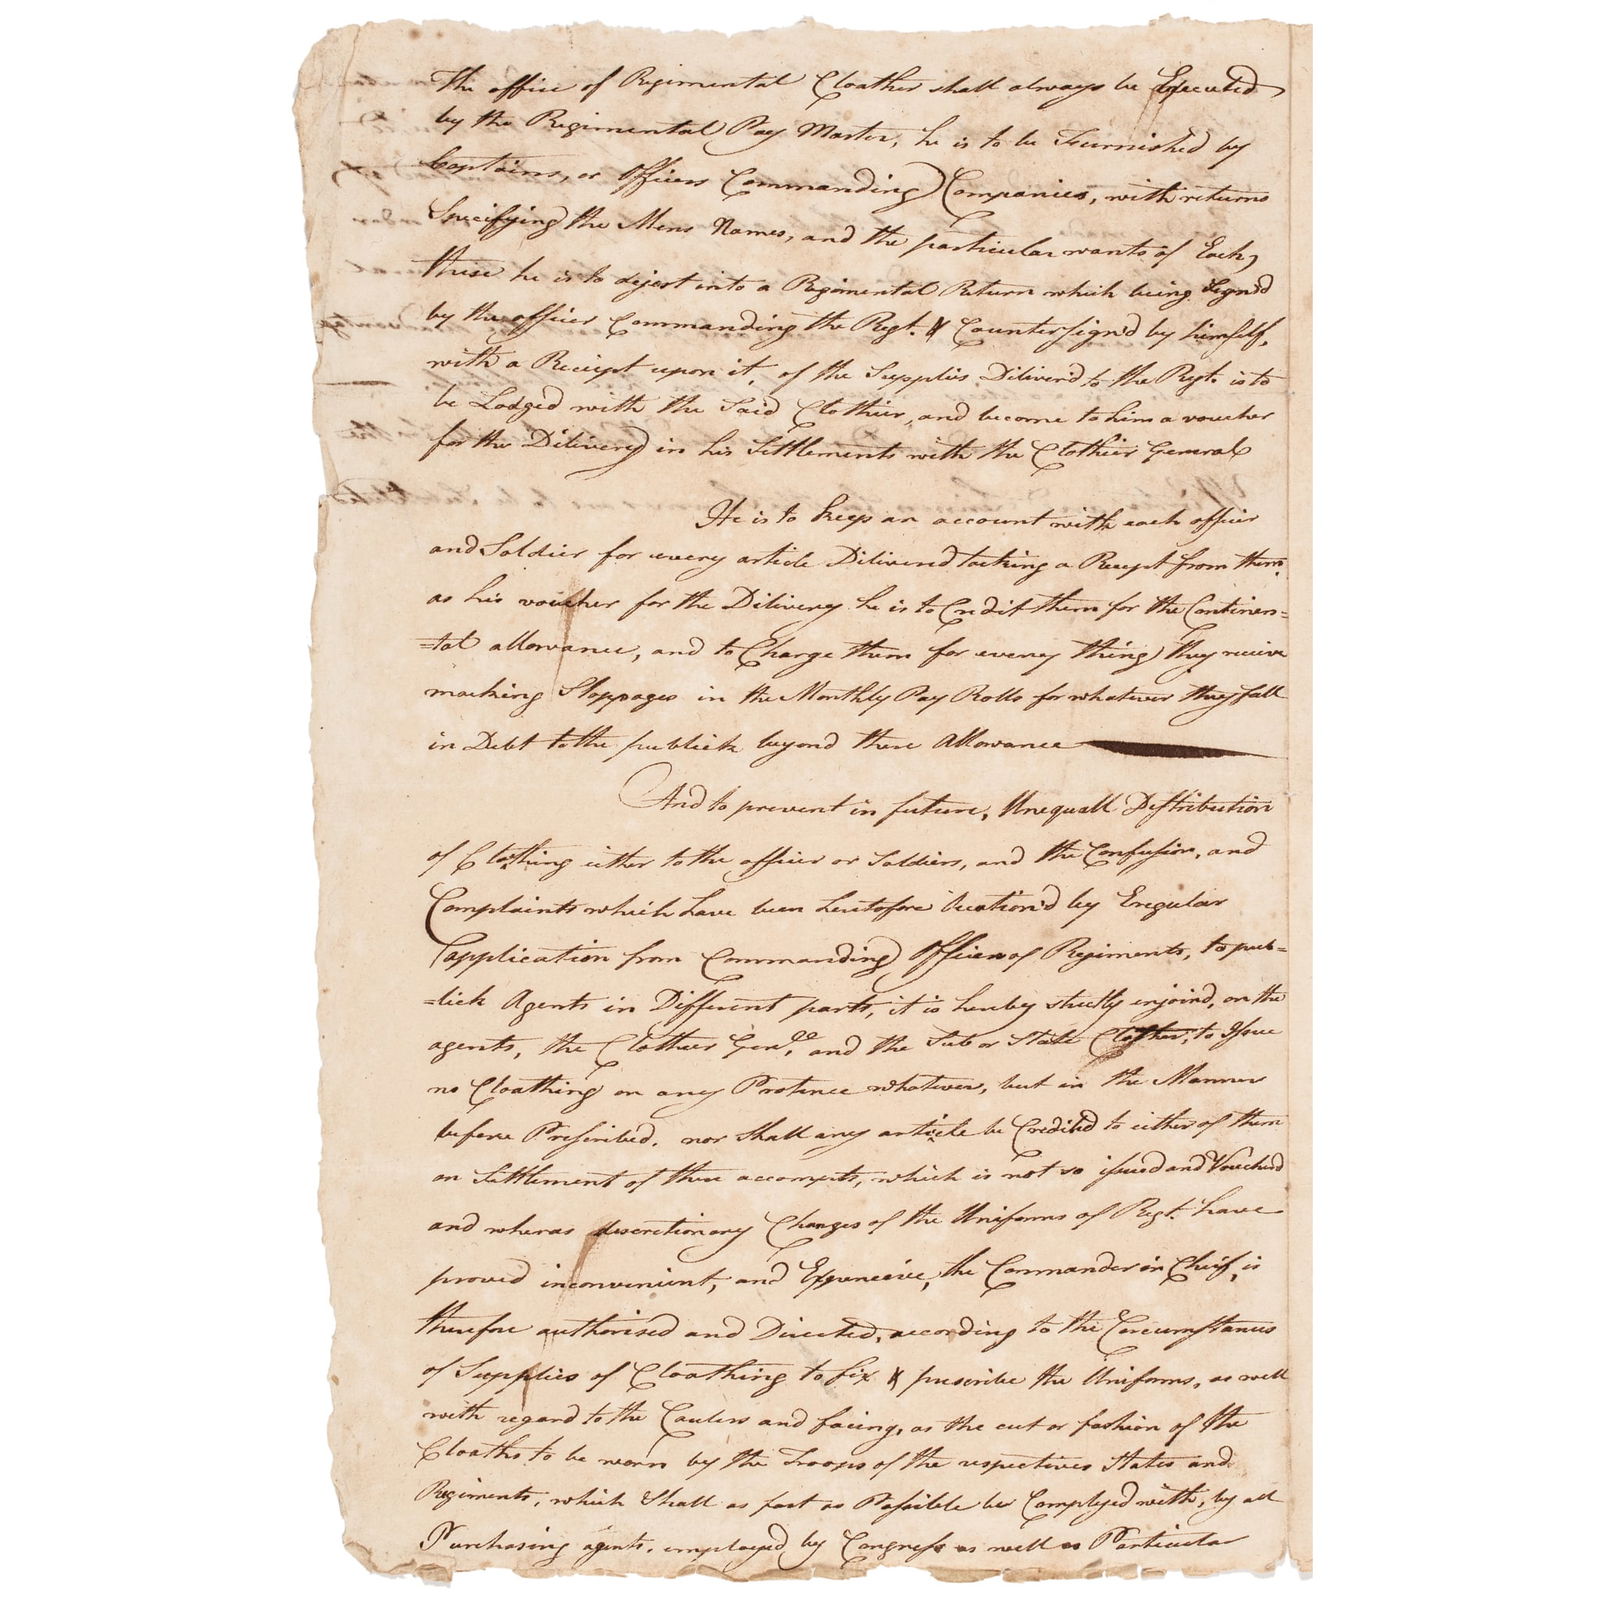 The office of Regimental Cloather shall always be Executed
by the Regimental Pay Master, he is to be Furnished by
Captains, or Officers Commanding Companies, with returns
Specifying the Mens Names, and the particular wants of Each,
these he is to digest into a Regimental Return which being Signd
by the officer Commanding the Regt. & Countersign'd by himself,
with a Receipt upon it, of the Supplies Deliver'd to the Regt. is to
be Lodged with the Said Clothier, and become to him a voucher
for the Delivery in his Settlements with the Clothier General
He is to keep an account with each officer
and Soldier for every article Delivered taking a Recept from them,
as his voucher for the Delivery he is to Credit them for the Continen=
=tal allowance, and to Charge them for every thing they receive
making Stoppages in the Monthly Pay Rolls for whatever they fall
in Debt to the publick beyond there Allowance
And to prevent in future, Unequall Distribution
of Cloathing either to the officer or Soldiers, and the Confusion, and
Complaints which have been heretofore Ocation'd by Eregular
application from Commanding Officers of Regiments, to pub=
=lick Agents in Different parts, it is hereby strictly enjoind, on the
agents, the Clothier Genll, and the Sub or State Clother, to Issue
no Cloathing on any Pretence whatever, but in the Manner
before Prescribed. nor Shall any article be Credited to either of them
on Settlement of there accompts, which is not so issued and Vouched
and wheras discretionary Changes of the Uniforms of Regt. have
proved inconvenient, and Expencive, the Commander in Chief, is
therefore authorised and Directed, according to the Circumstances
of Supplies of Cloathing to fix & prescribe the Uniforms, as well
with regard to the Caulers and facing, as the cut or fashion of the
Cloaths to be worn by the Troops of the respectives States and
Regiments, which Shall as fast as Possible be Complyed with, by all
Purchasing agents, employed by Congress as well as Particular